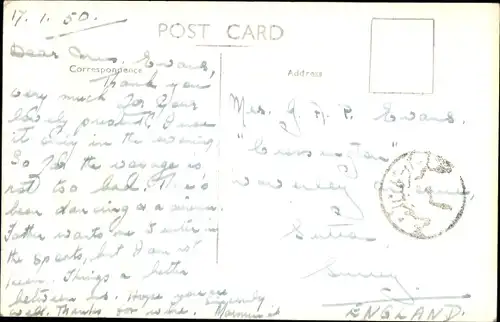 17.1.50.
POST CARD
Dear Mrs. Evans,
Correspondence
Address
Thank you
very much for your
lovely present. I wore
it only in the evening
So far the voyage is
not too bad. There's
been dancing &
Father wants me to enter in
the sports, but I am not
keen. Things a better
between us. Hope you are
well. Thanks for wire. Sincerely
Mrs. J. A. P. Evans.
Waverley
Sutton
Surrey
ENGLAND.